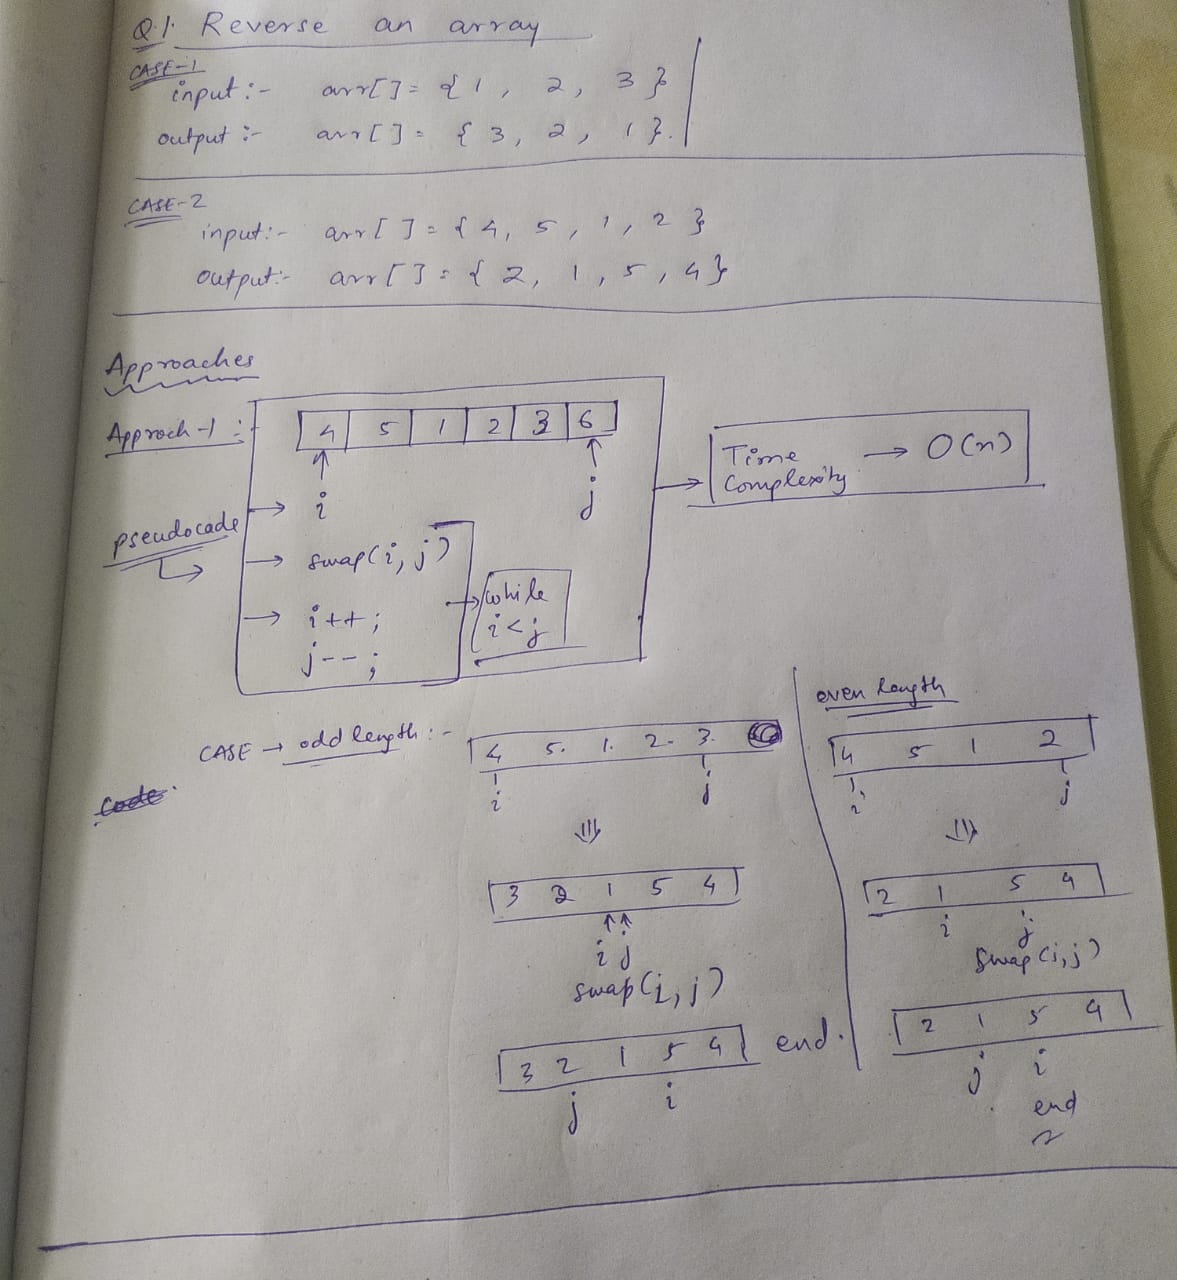 Q.1. Reverse an array
CASE-1
input :- arr[] = {1, 2, 3}
output :- arr[] = {3, 2, 1}.
CASE-2
input:- arr[] = {4, 5, 1, 2}
output:- arr[] = {2, 1, 5, 4}
Approaches
Approch-1 :-
4 5 1 2 3 6
i j
Time Complexity → O(n)
pseudocade
→ swap(i, j)
→ i++;
j--;
→ while
i<j
CASE → odd length :-
4 5. 1. 2. 3.
i j
3 2 1 5 4
i j
swap(i, j)
3 2 1 5 4 end.
j i
even length
4 5 1 2
i j
2 1 5 4
i j
swap(i,j)
2 1 5 4
j i
end
code.